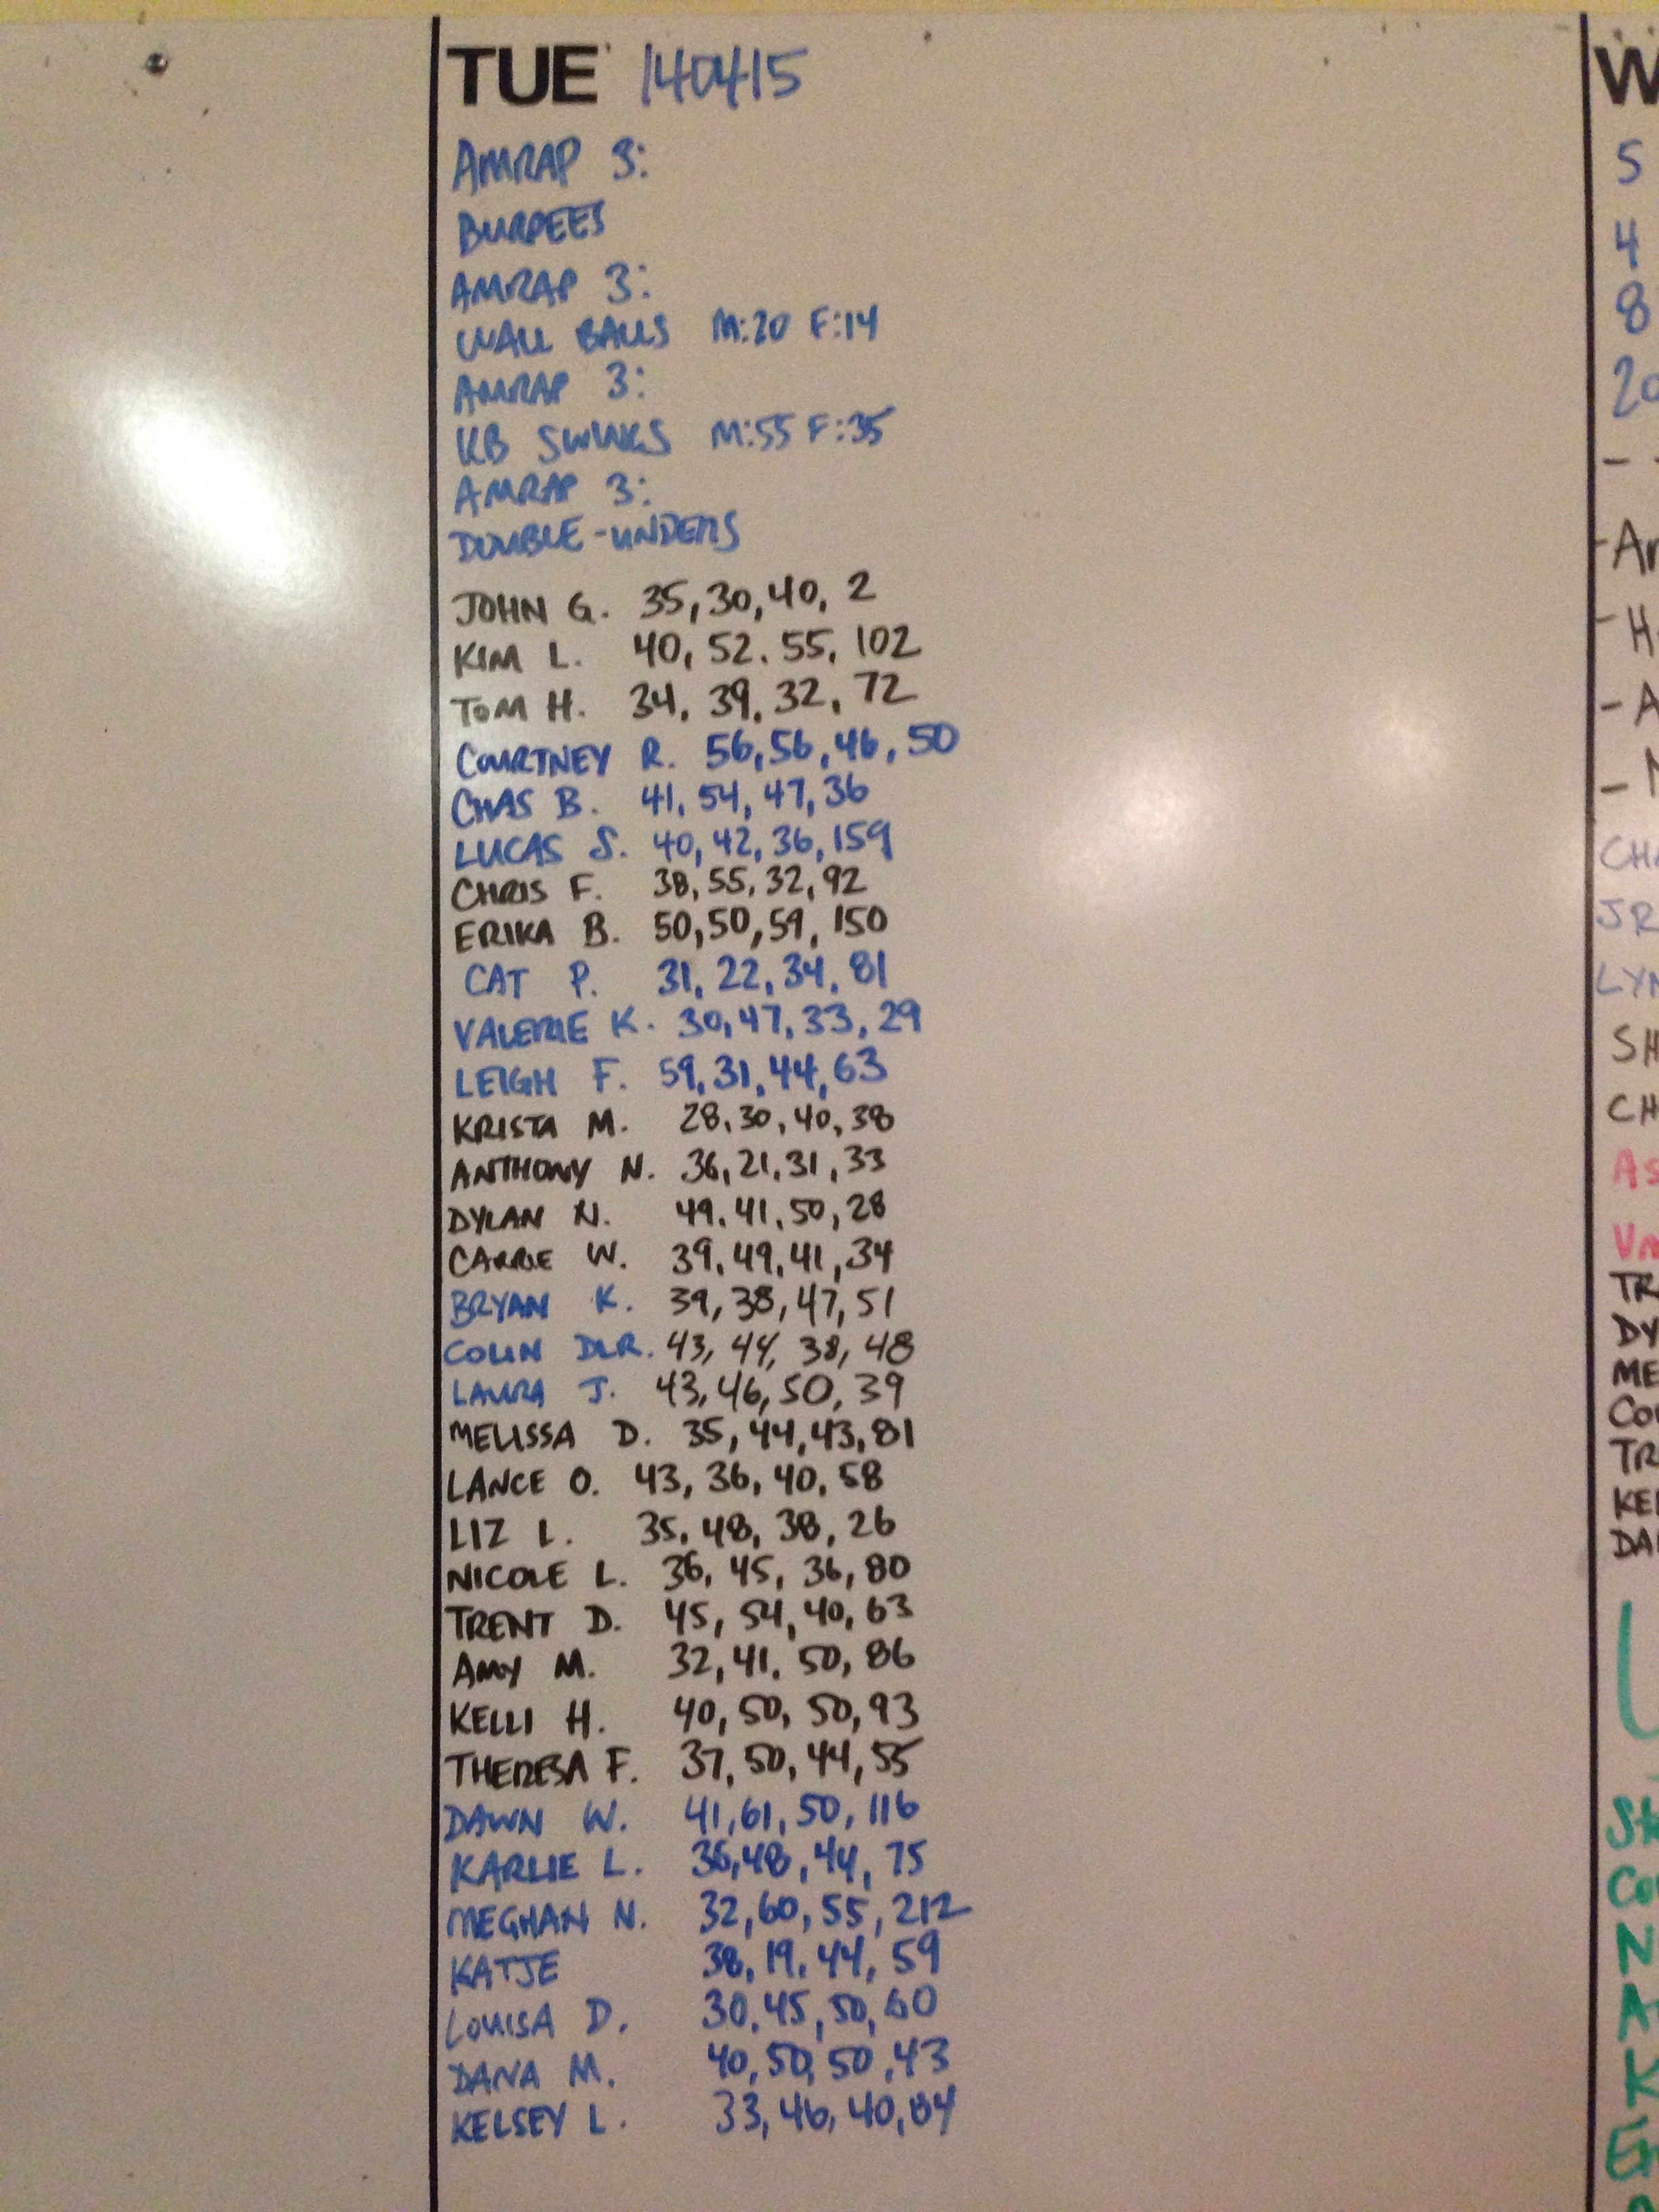 TUE 140415
AMRAP 3:
BURPEES
AMRAP 3:
WALL BALLS M:20 F:14
AMRAP 3:
KB SWINGS M:55 F:35
AMRAP 3:
DOUBLE-UNDERS
JOHN G. 35, 30, 40, 2
KIM L. 40, 52. 55, 102
TOM H. 34, 39, 32, 72
COURTNEY R. 56, 56, 46, 50
CHAS B. 41, 54, 47, 36
LUCAS S. 40, 42, 36, 159
CHRIS F. 38, 55, 32, 92
ERIKA B. 50, 50, 59, 150
CAT P. 31, 22, 34, 81
VALERIE K. 30, 47, 33, 29
LEIGH F. 59, 31, 44, 63
KRISTA M. 28, 30, 40, 38
ANTHONY N. 36, 21, 31, 33
DYLAN N. 49, 41, 50, 28
CARRIE W. 39, 49, 41, 34
BRYAN K. 39, 38, 47, 51
COLIN DLR. 43, 44, 38, 48
LAURA J. 43, 46, 50, 39
MELISSA D. 35, 44, 43, 81
LANCE O. 43, 36, 40, 58
LIZ L. 35, 48, 38, 26
NICOLE L. 36, 45, 36, 80
TRENT D. 45, 54, 40, 63
AMY M. 32, 41, 50, 86
KELLI H. 40, 50, 50, 93
THERESA F. 37, 50, 44, 55
DAWN W. 41, 61, 50, 116
KARLIE L. 36, 48, 44, 75
MEGHAN N. 32, 60, 55, 212
KATJE 38, 19, 44, 59
LOUISA D. 30, 45, 50, 60
DANA M. 40, 50, 50, 43
KELSEY L. 33, 46, 40, 84
W
5
4
8
20
CHA
JR
LYN
SH
CH
As
TR
DY
ME
COU
TR
KEL
DA
Co
N
A
K